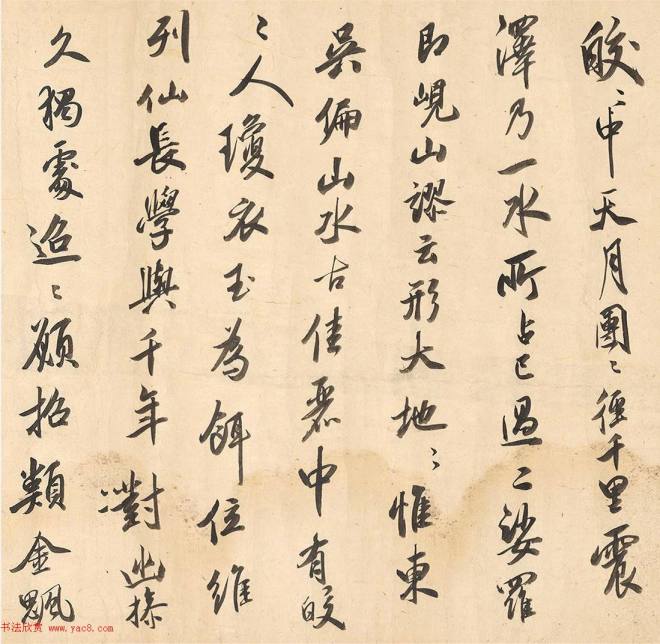 皎〻中天月團〻徑千里震
澤乃一水所占已過二娑羅
即峴山謬云形大地〻惟東
吳偏山水古佳麗中有皎
〻人瓊衣玉為餌位維
列仙長學與千年對幽操
久獨處迢〻願招類金颸
书法欣赏 www.yac8.com